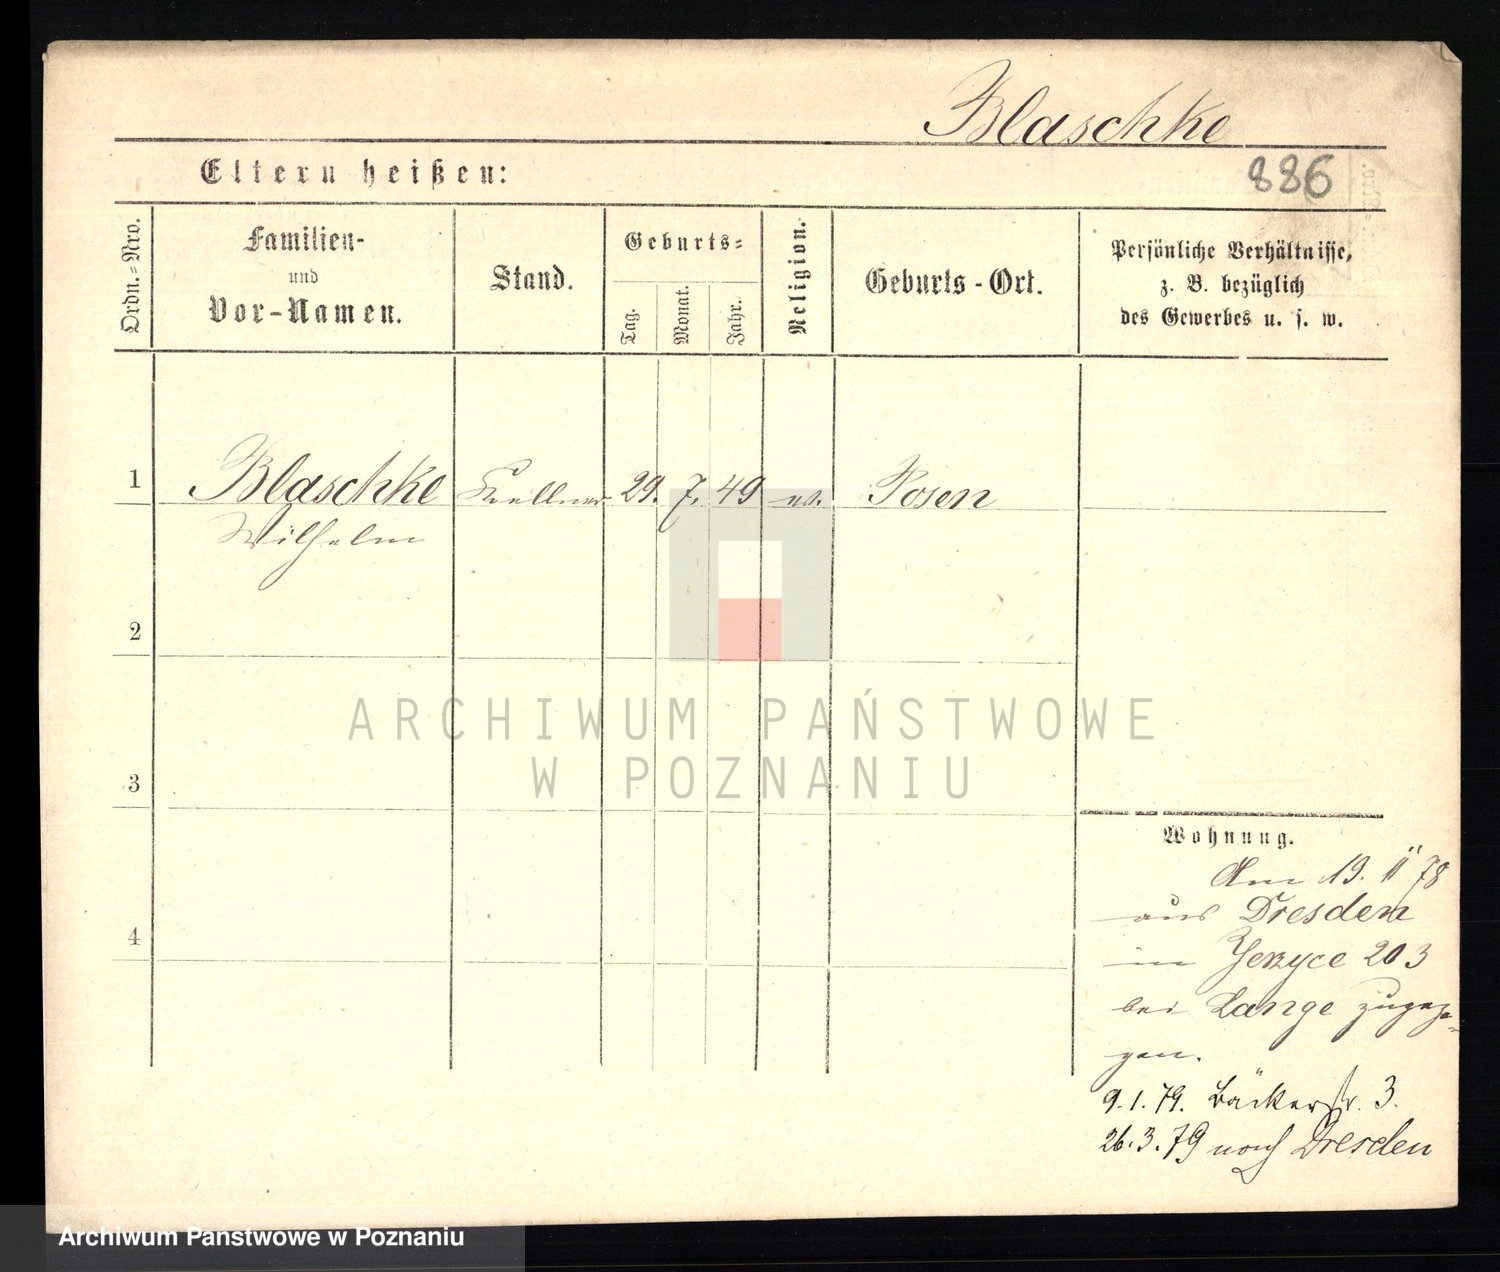 Blaschke
Eltern heißen:
886
Ordn.=Nro.
Familien-
und
Vor-Namen.
Stand.
Geburts=
Tag.
Monat.
Jahr.
Religion.
Geburts-Ort.
Persönliche Verhältnisse,
z. B. bezüglich
des Gewerbes u. s. w.
1 Blaschke Kellner 29. 7. 49 ev. Posen
Wilhelm
2
3
4
ARCHIWUM PAŃSTWOWE
W POZNANIU
Wohnung.
Am 19. 11 78
aus Dresden
in Jerzyce 203
bei Lange zugezo=
gen.
9.1.79. Bäckerstr. 3.
26.3.79 nach Dresden
Archiwum Państwowe w Poznaniu